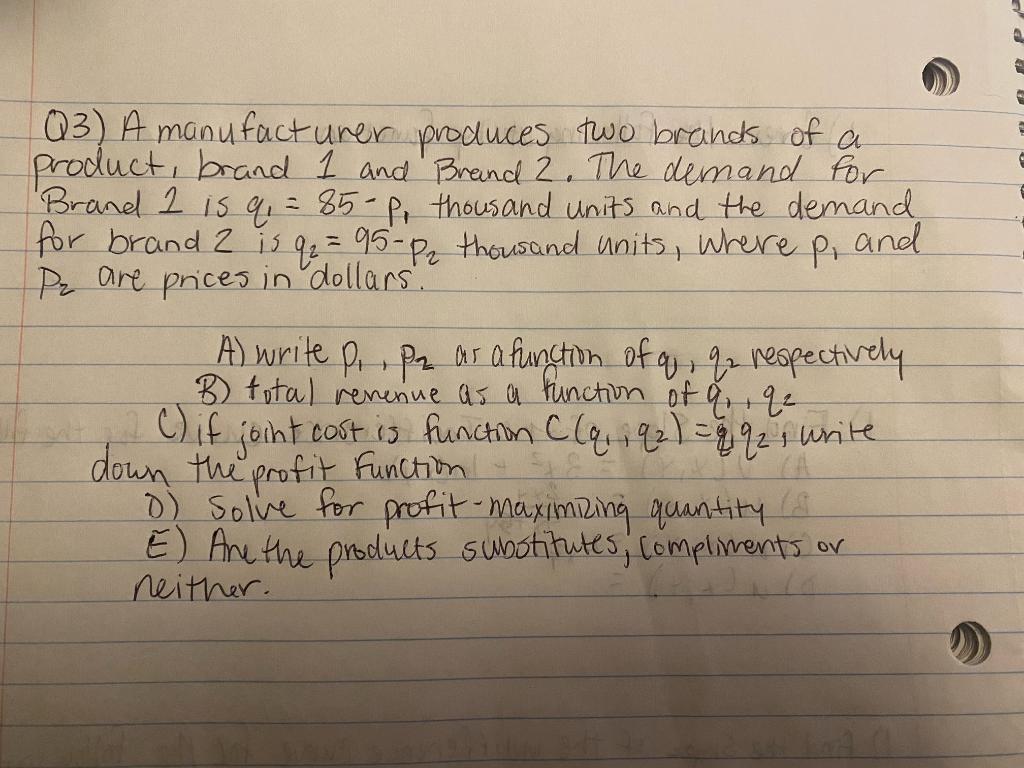 Q3) A manufacturer produces two brands of a
product, brand 1 and Brand 2. The demand for
Brand 1 is q₁ = 85-p₁ thousand units and the demand
for brand 2 is q₂ = 95-p₂ thousand units, where p₁ and
p₂ are prices in dollars.
A) write p₁, p₂ as a function of q₁, q₂ respectively
B) total revenue as a function of q₁, q₂
C) if joint cost is function C(q₁, q₂) = q₁q₂, write
down the profit function
D) Solve for profit-maximizing quantity
E) Are the products substitutes, compliments or
neither.